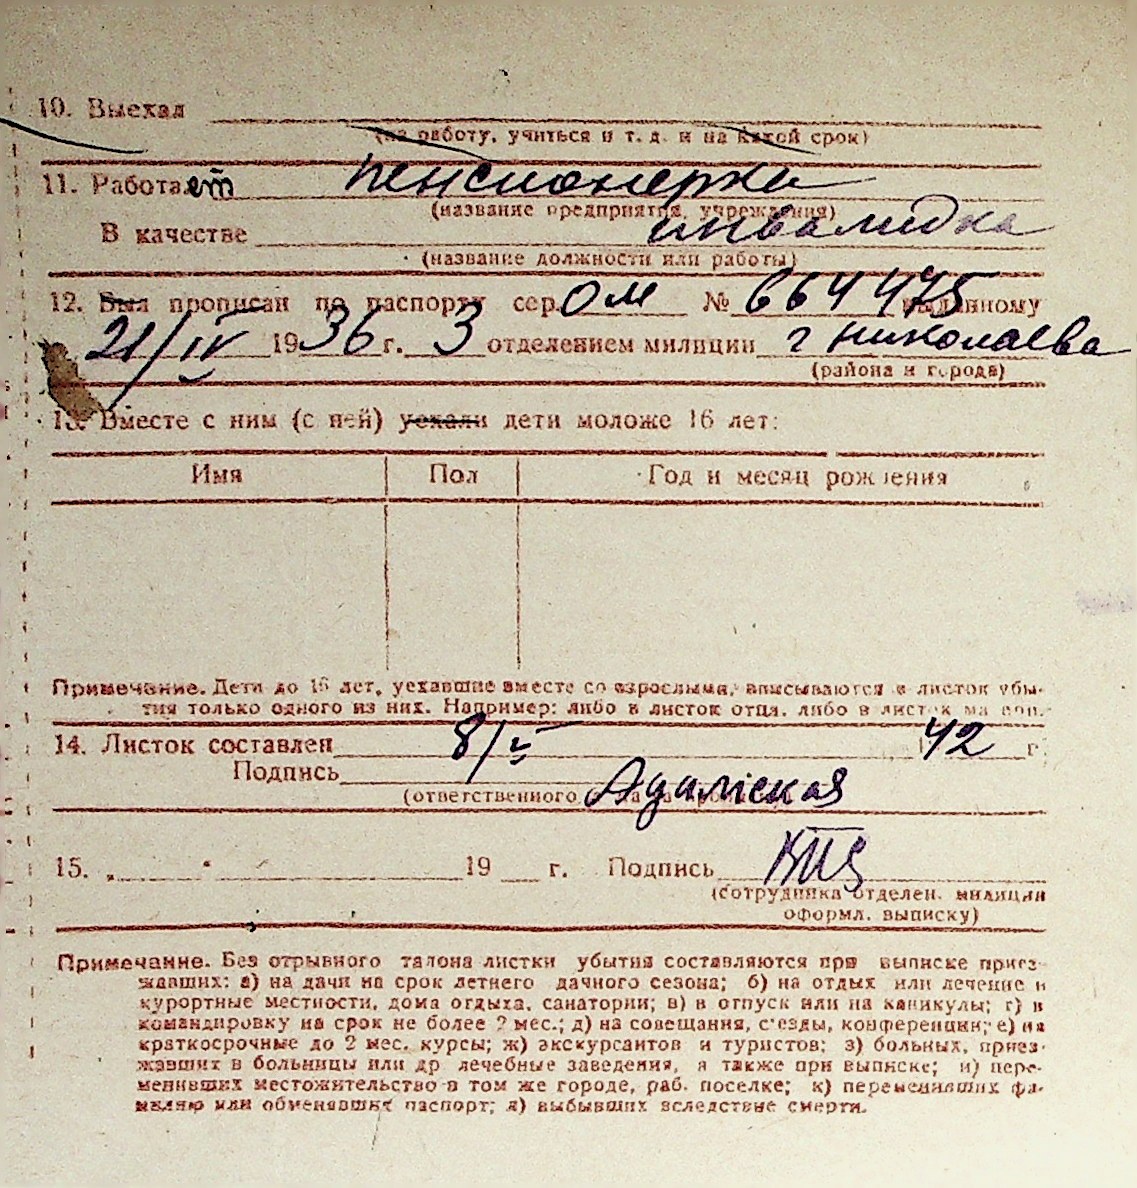 10. Выехал
(на работу, учиться и т. д. и на какой срок)
11. Работает пенсионерка
(название предприятия, учреждения)
В качестве инвалидка
(название должности или работы)
12. Был прописан по паспорту сер. ОМ № 664475 выданному
21/IV 1936 г. 3 отделением милиции г николаева
(района и города)
13. Вместе с ним (с ней) уехали дети моложе 16 лет:
Имя Пол Год и месяц рождения
Примечание. Дети до 16 лет, уехавшие вместе со взрослыми, вписываются в листок убы-
тия только одного из них. Например: либо в листок отца, либо в листок ма
14. Листок составлен 8/V 1942 г.
Подпись Адамская
(ответственного
15. „ " 19 г. Подпись
(сотрудника отделен. милиции
оформл. выписку)
Примечание. Без отрывного талона листки убытия составляются при выписке приез-
жавших: а) на дачи на срок летнего дачного сезона; б) на отдых или лечение в
курортные местности, дома отдыха, санатории; в) в отпуск или на каникулы; г) в
командировку на срок не более 2 мес.; д) на совещания, с'езды, конференции; е) на
краткосрочные до 2 мес. курсы; ж) экскурсантов и туристов; з) больных, приез-
жавших в больницы или др лечебные заведения, а также при выписке; и) пере-
менивших местожительство в том же городе, раб. поселке; к) переменивших фа-
милию или обменявших паспорт; л) выбывших вследствие смерти.